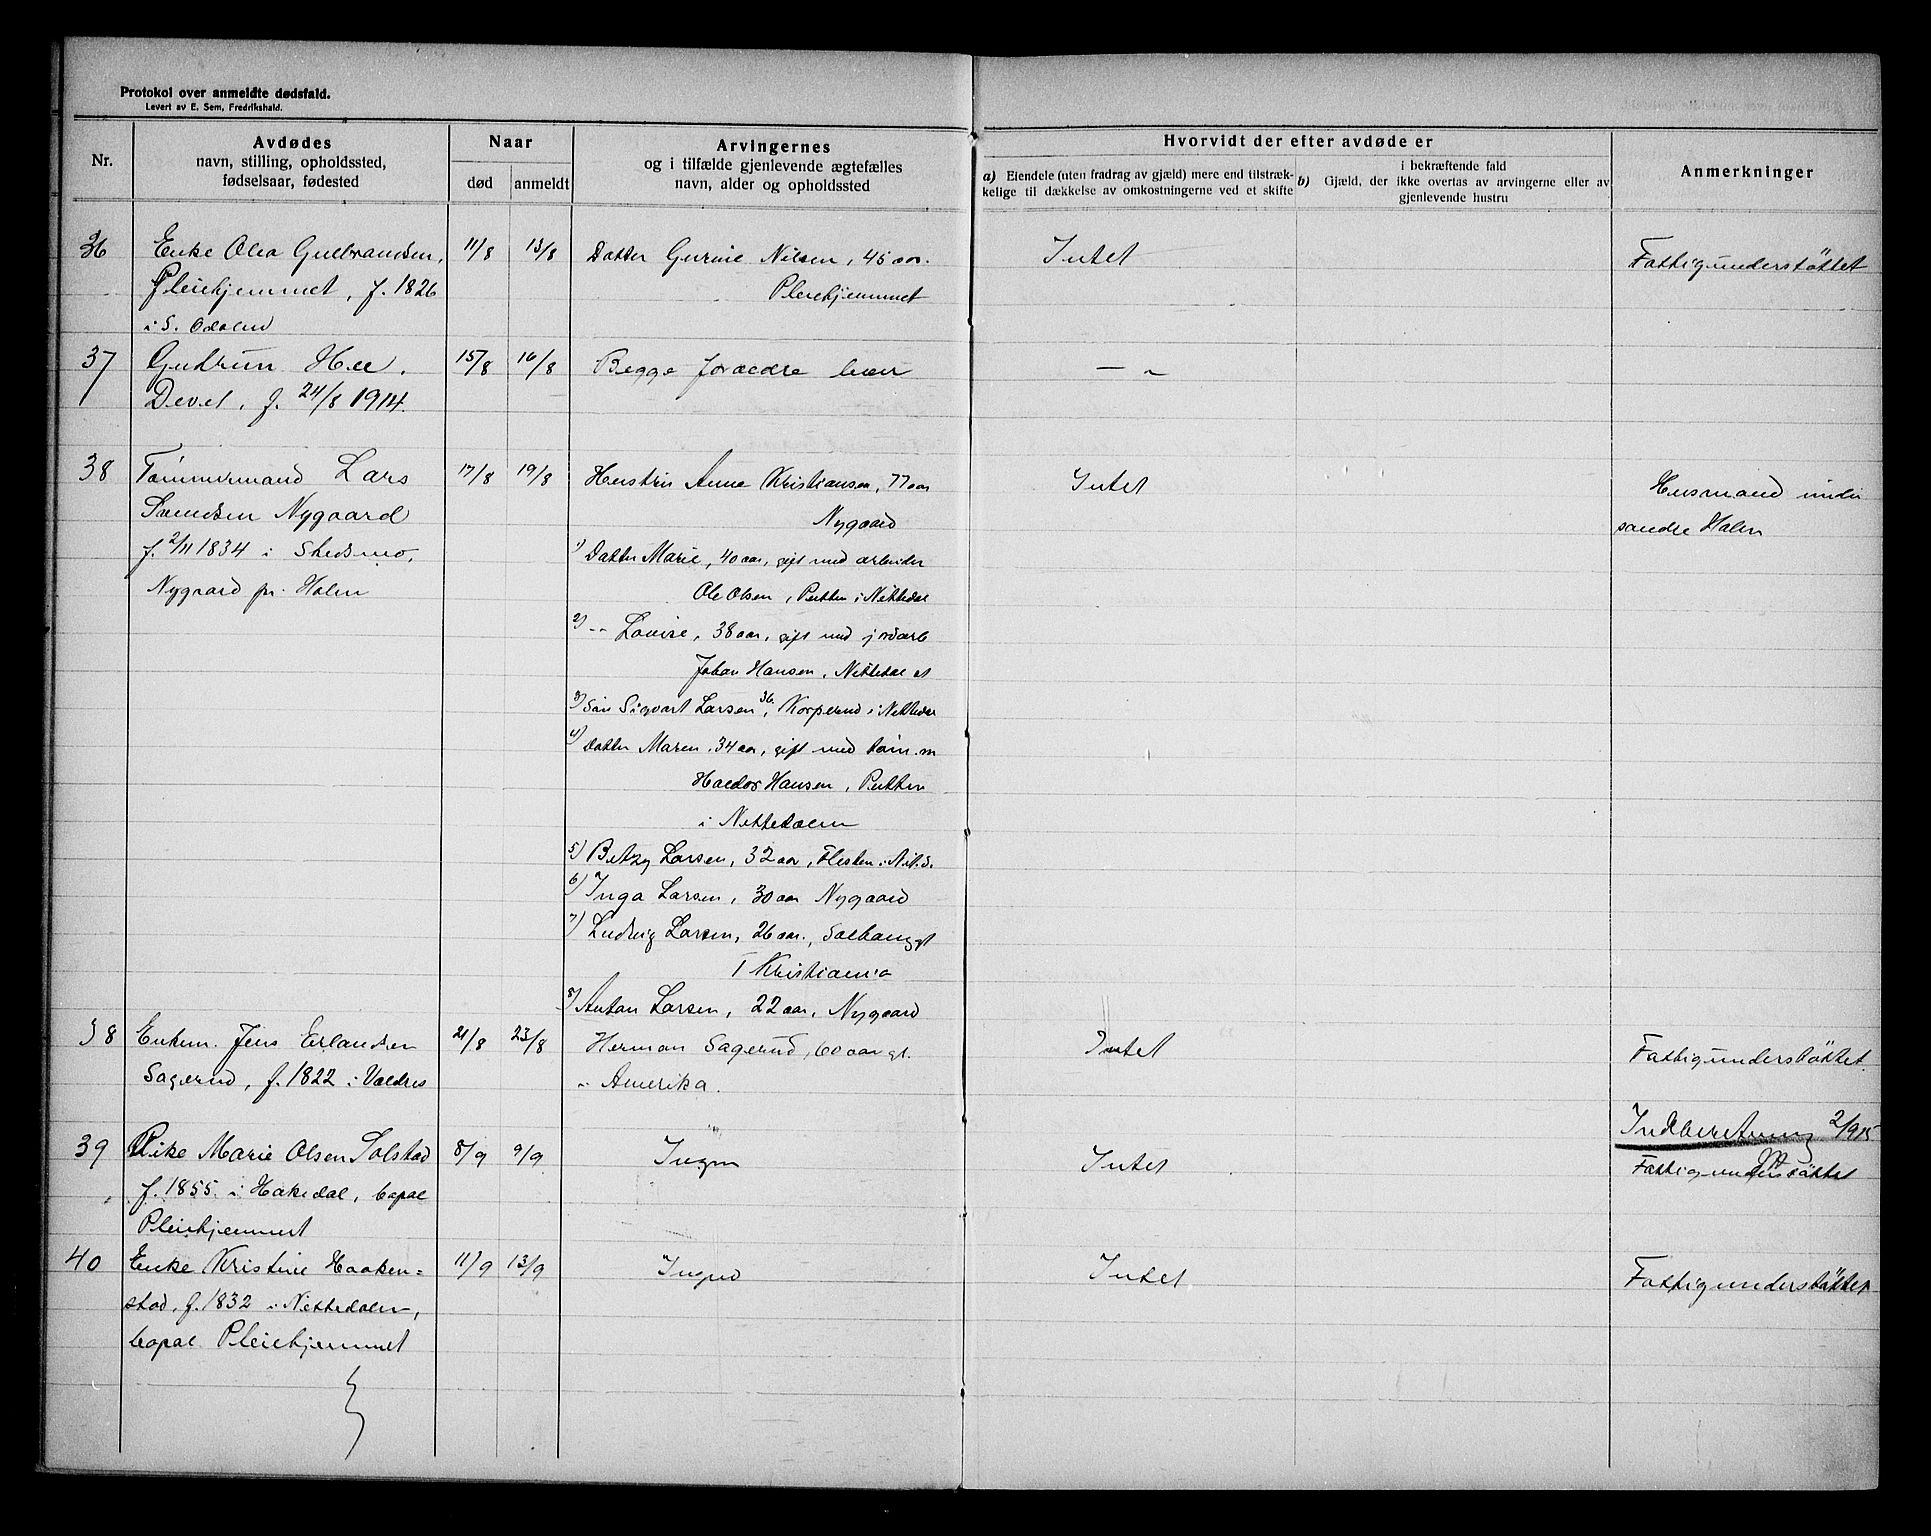 Protokol over anmeldte dødsfald.
Levert av E. Sem, Fredrikshald.
Nr.
Avdødes
navn, stilling, opholdssted,
fødselsaar, fødested
Naar
død
anmeldt
Arvingernes
og i tilfælde gjenlevende ægtefælles
navn, alder og opholdssted
Hvorvidt der efter avdøde er
a) Eiendele (uten fradrag av gjæld) mere end tilstræk-
kelige til dækkelse av omkostningerne ved et skifte
i bekræftende fald
b) Gjæld, der ikke overtas av arvingerne eller av
gjenlevende hustru
Anmerkninger
36
Enke Olea Gulbrandsen,
Pleiehjemmet, f. 1826
i S. Odalen
11/8
13/8
Datter Gurine Nilsen, 45 aar.
Pleiehjemmet
Intet
Fattigunderstöttet
37
Gudrun Hee.
Devet, f. 24/8 1914.
15/8
16/8
Begge forældre lever
— "
38
Tømmermand Lars
Svendsen Nygaard
f. 2/11 1834 i Skedsmo,
Nygaard pr. Holen
17/8
19/8
Hustru Anne Kristiansen, 77 aar
Nygaard
1) Datter Marie, 40 aar, gift med arbeider
Ole Olsen, Putten i Nittedal
2) -- Lovise, 38 aar, gift med jordarb
Johan Hansen, Nittedal st
3) Søn Sigvart Larsen 36, Korperud i Nittedal
4) Datter Maren, 34 aar, gift med tøm.m
Haldor Hansen, Putten
i Nittedalen
5) Betzy Larsen, 32 aar, Flesten i Nit.d.
6) Inga Larsen, 30 aar Nygaard
7) Ludvig Larsen, 26 aar,
i Kristiania
8) Anton Larsen, 22 aar, Nygaard
Intet
Husmand under
søndre Holen
38
Enkem. Jens Erlandsen
Sagerud, f. 1822 i Valdres
21/8
23/8
Herman Sagerud, 60 aar gl.
i Amerika.
Intet
Fattigunderstöttet.
Indberetning 2/9 15
39
Pike Marie Olsen Solstad
f. 1855. i Hakedal, bopæl
Pleiehjemmet
8/9
9/9
Ingen
Intet
Fattigunderstöttet
40
Enke Kristine Haaken=
stad, f. 1832 i Nittedalen,
bopæl Pleiehjemmet
11/9
13/9
Ingen
Intet
Fattigunderstöttet